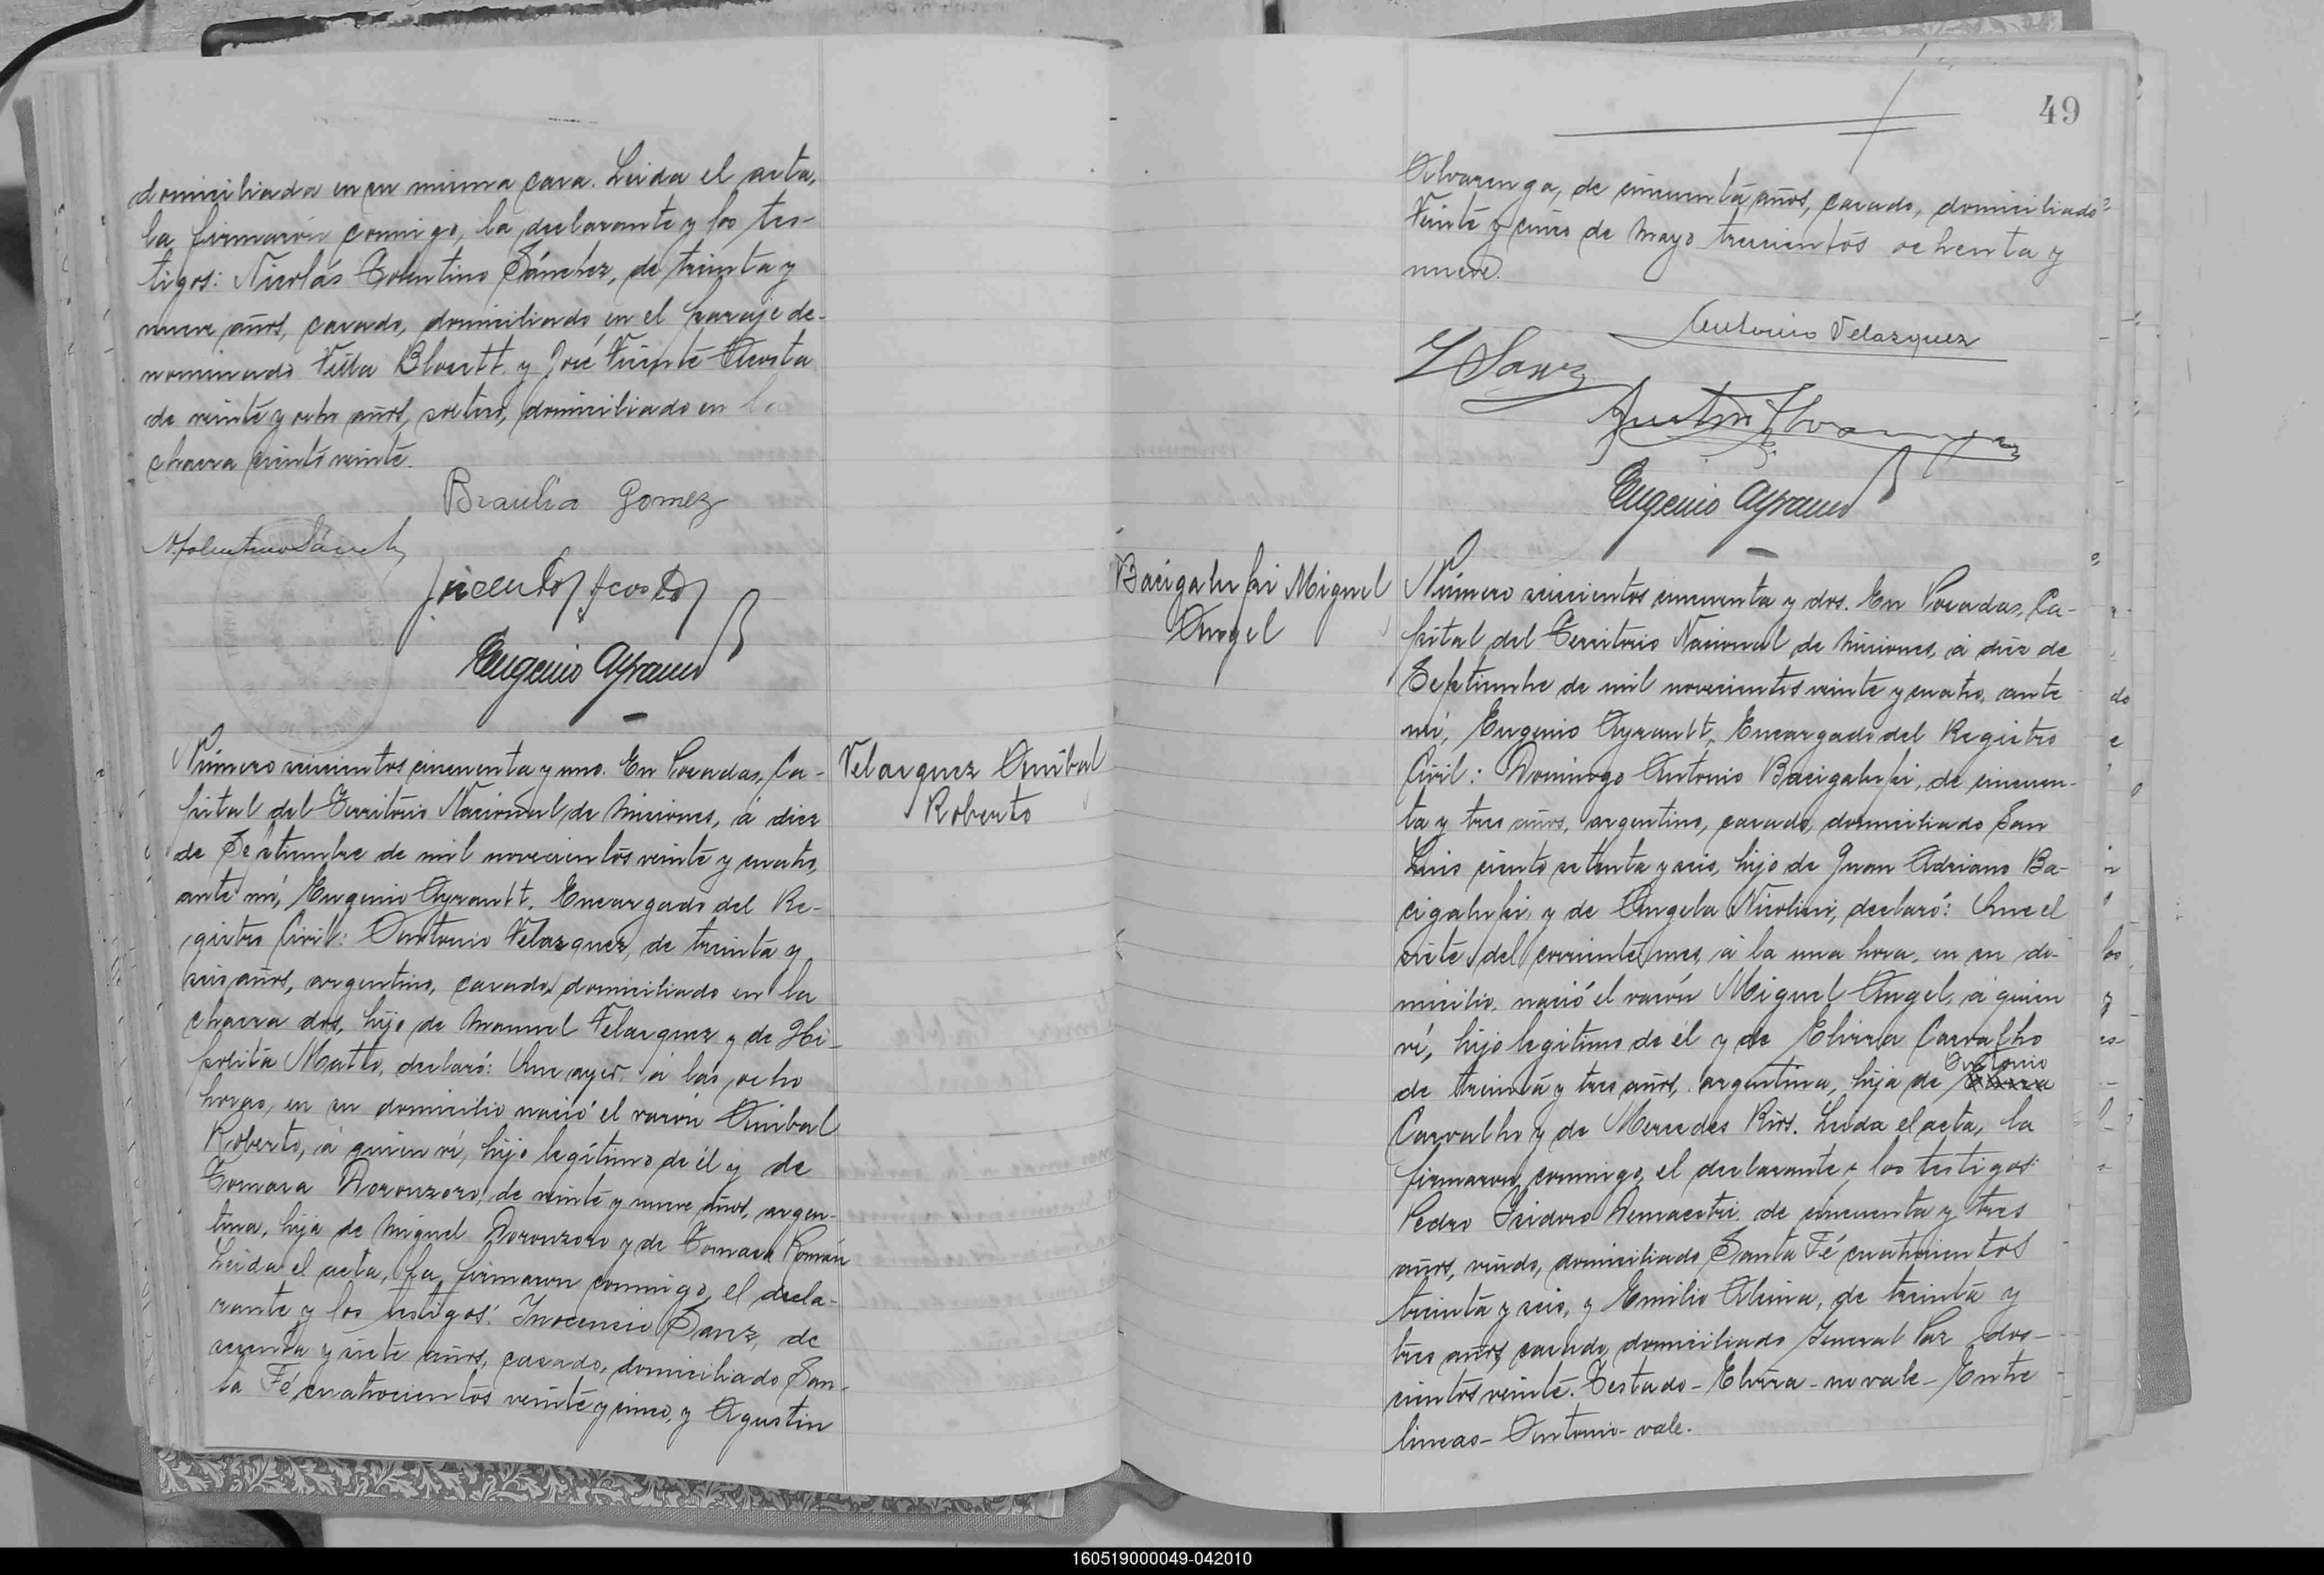 domiciliada en su misma casa. Leida el acta,
la firmaron conmigo, la declarante y los tes-
tigos: Nicolás Tolentino Sánchez, de treinta y
nueve años, casado, domiciliado en el paraje de-
nominado Villa Blosett y José Vicente Acosta
de veinte y ocho años, soltero, domiciliado en la
chacra ciento veinte.
Braulia Gomez
N. Tolentino Sánchez
J. Vicente Acosta
Eugenio Ayrault
Número seiscientos cincuenta y uno. En Posadas, Ca-
pital del Territorio Nacional de Misiones, á diez
de Septiembre de mil novecientos veinte y cuatro,
ante mí, Eugenio Ayrault, Encargado del Re-
gistro Civil: Antonio Velazquez, de treinta y
seis años, argentino, casado, domiciliado en la
chacra dos, hijo de Manuel Velazquez y de Hi-
pólita Matto, declaró: Que ayer, á las ocho
horas, en su domicilio nació el varón Anibal
Roberto, á quien ví, hijo legítimo de él y de
Tomasa Doronzoro, de veinte y nueve años, argen-
tina, hija de Miguel Doronzoro y de Tomasa Román
Leida el acta, la firmaron conmigo, el decla-
rante y los testigos: Inocencio Sanz, de
sesenta y siete años, casado, domiciliado San-
ta Fé cuatrocientos veinte y cinco, y Agustin
Velazquez Anibal
Roberto
49
Alvarenga, de cincuenta años, casado, domiciliado
Veinte y cinco de Mayo trescientos ochenta y
nueve.
Antonio Velazquez
I Sanz
Eugenio Ayrault
Bacigalupi Miguel
Angel
Número seiscientos cincuenta y dos. En Posadas, Ca-
pital del Territorio Nacional de Misiones, á diez de
Septiembre de mil novecientos veinte y cuatro, ante
mí, Eugenio Ayrault, Encargado del Registro
Civil: Domingo Antonio Bacigalupi, de cincuen-
ta y tres años, argentino, casado, domiciliado San
Luis ciento setenta y seis, hijo de Juan Adriano Ba-
cigalupi y de Angela Nicolini, declaró: Que el
siete del corriente mes, á la una hora, en su do-
micilio, nació el varón Miguel Angel, á quien
ví, hijo legítimo de él y de Elvira Carvalho
de treinta y tres años, argentina, hija de Elvira Antonio
Carvalho y de Mercedes Rios. Leida el acta, la
firmaron conmigo, el declarante y los testigos:
Pedro Isidoro Demaestri de cincuenta y tres
años, viudo, domiciliado Santa Fé cuatrocientos
treinta y seis, y Emilio Alsina, de treinta y
tres años, casado, domiciliado General Paz dos-
cientos veinte. Testado - Elvira - no vale - Entre
lineas - Antonio - vale.
160519000049-042010